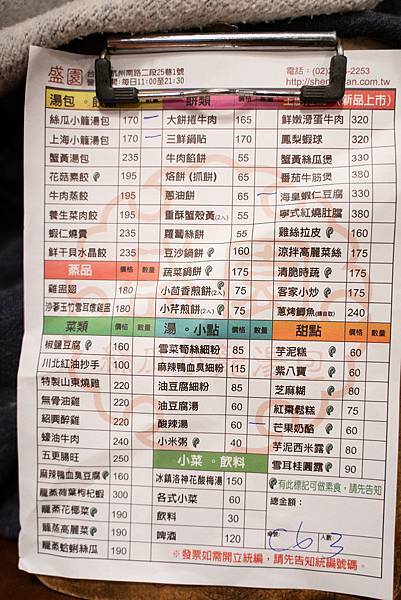 盛園
杭州南路二段25巷1號
每日11:00至21:30
電話：(02)
2253
http://shen
an.com.tw
湯包
餅類
新品上市)
絲瓜小籠湯包 170 一
上海小籠湯包 170
蟹黃湯包 235
花菇素餃 195
牛肉蒸餃 195
養生菜肉餃 195
蝦仁燒賣 235
鮮干貝水晶餃 235
蒸品 價格 數量
雞盅翅 180
沙蔘玉竹雪耳燉雞盅 180
菜類 價格 數量
椒鹽豆腐 160
川北紅油抄手 100
特製山東燒雞 220
無骨油雞 220
紹興醉雞 220
蠔油牛肉 240
五更腸旺 250
麻辣鴨血臭豆腐 160
龍蒸荷葉枸杞蝦 300
龍蒸花椰菜 190
龍蒸高麗菜 190
龍蒸蛤蜊絲瓜 190
一 大餅捲牛肉 165
三鮮鍋貼 170
牛肉餡餅 55
烙餅 (抓餅) 65
蔥油餅 65
重酥蟹殼黃(2入) 55
蘿蔔絲餅 55
豆沙鍋餅 175
蔬菜鍋餅 175
小茴香煎餅(2入)
小芹煎餅(2入)
湯。小點 價格 數量
雪菜筍絲細粉 85
麻辣鴨血臭細粉 115
油豆腐細粉 85
油豆腐湯 60
酸辣湯 60
小米粥 40
小菜。飲料
冰鎮洛神花酸梅湯 150
各式小菜 60
飲料 30
啤酒 120
鮮嫩滑蛋牛肉 320
鳳梨蝦球 320
蟹黃絲瓜煲 330
番茄牛筋煲 380
海皇蝦仁豆腐 330
寧式紅燒肚膛 380
雞絲拉皮 160
涼拌高麗菜絲 175
清脆時蔬 175
客家小炒 175
蔥烤鯽魚(請自取) 240
甜點 價格 數量
芋泥糕 60
紫八寶 60
芝麻糊 80
紅棗鬆糕 75
芒果奶酪 60
芋泥西米露 80
雪耳桂圓露 90
有此標記可做素食，請先告知
總金額：
C6
人數：
3
※發票如需開立統編，請先告知統編號碼。